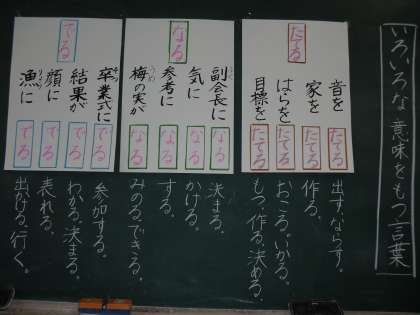 いろいろな意味をもつ言葉
たてる
音をたてる
家をたてる
はらをたてる
目標をたてる
出す、ならす。
作る。
おこる。いかる。
もつ、作る、決める。
なる
副会長になる
気になる
参考になる
梅の実がなる
決まる。
かける。
する。
みのる。できる。
でる
卒業式にでる
結果がでる
顔にでる
漁にでる
参加する。
わかる。決まる。
表れる。
出かける。行く。